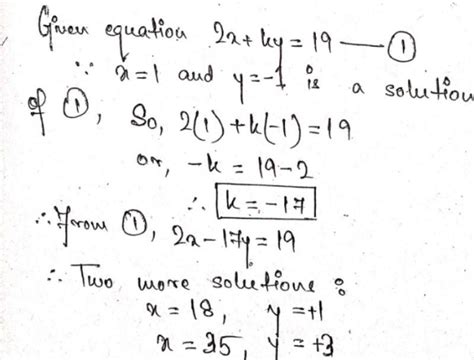 Given equation 2x + ky = 19 — ①
∵ x = 1 and y = -1 is a solution
of ①, So, 2(1) + k(-1) = 19
or, -k = 19-2
∴ k = -17
∴ From ①, 2x - 17y = 19
∴ Two more solutions :
x = 18, y = +1
x = 35, y = +3